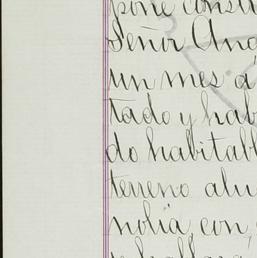 pone consti
Señor And
un mes a
tado y hab
do habitabl
terreno alu
nolia con
y hallara